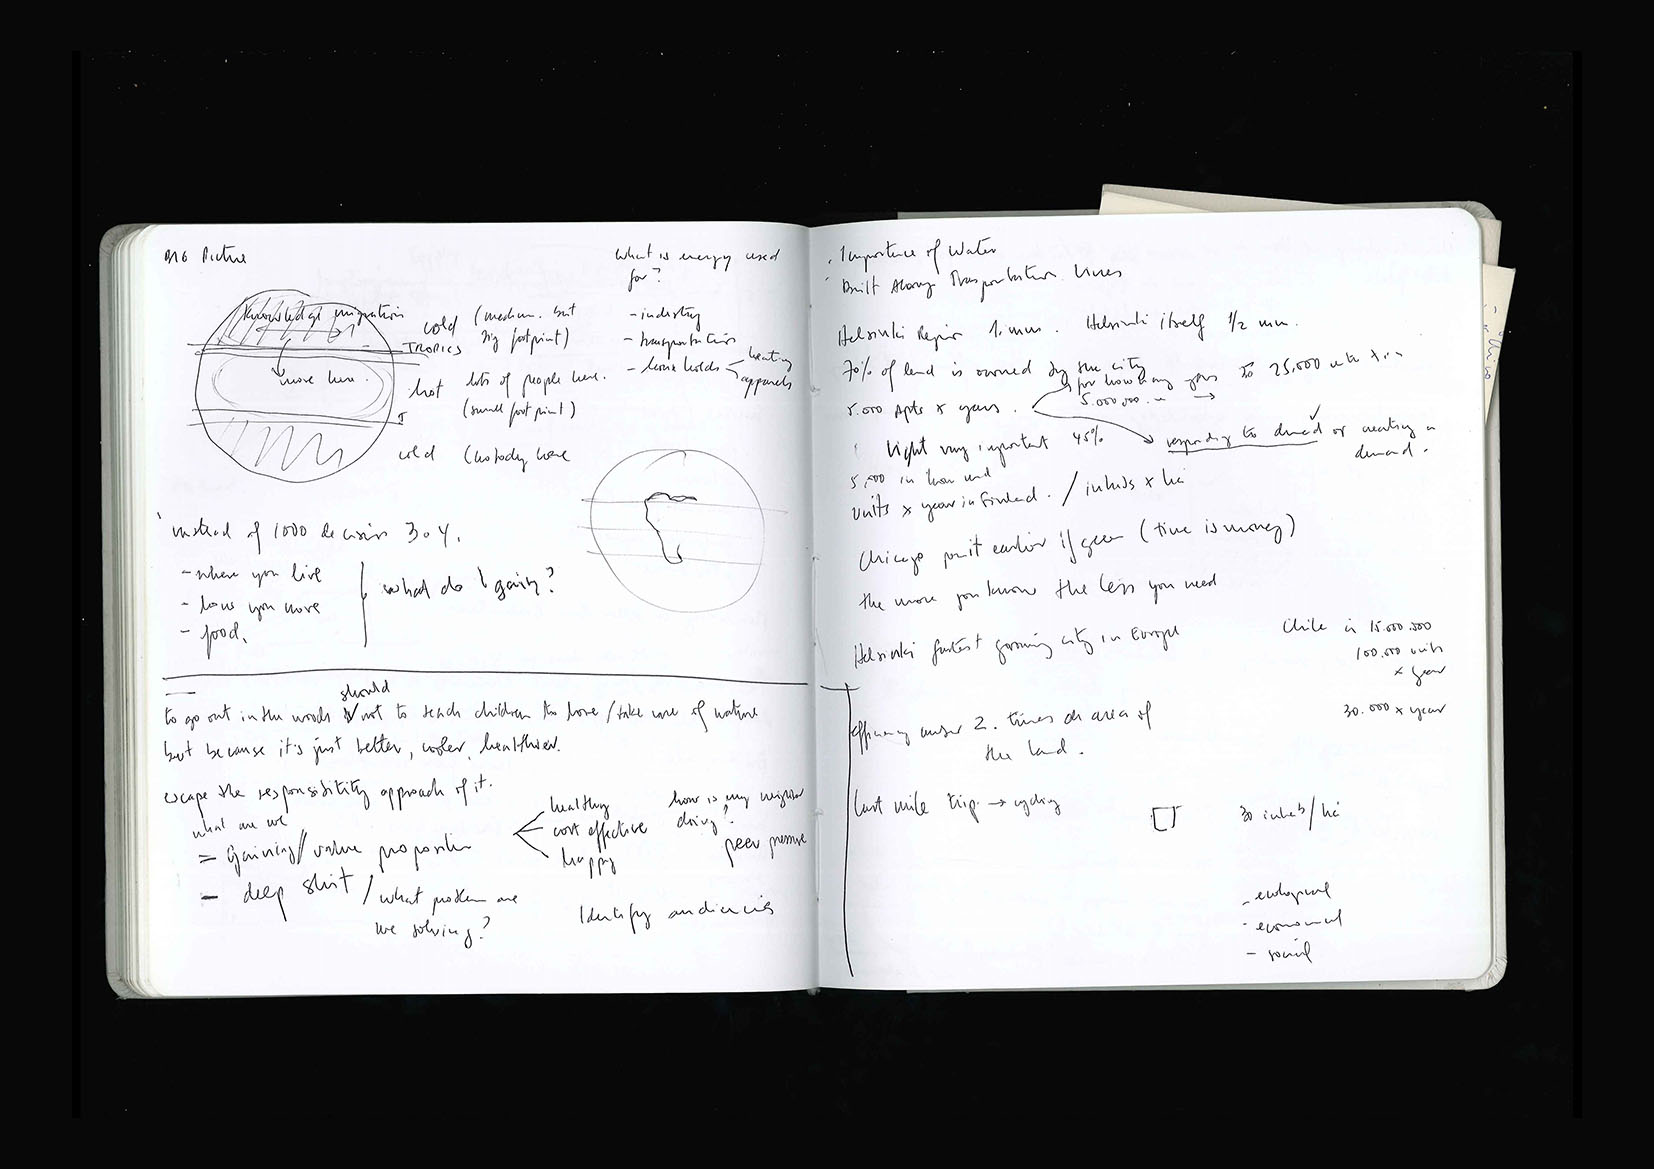 BIG Picture
Knowledge migration
move here.
cold (medium. but
big footprint)
TROPICS
hot lots of people here.
(small footprint)
cold (custody here
What is energy used
for?
- industry
- transportation
- households
heating
instead of 1000 decision 3 o 4.
- where you live
- how you move
- food.
what do I gain?
should
to go out in the woods not to teach children to love / take care of nature
but because it's just better, cooler, healthier.
escape the responsibility approach of it.
what are we
= Gaining / value proposition
healthy
cost effective
happy
how is my neighbor
doing?
peer pressure
- deep shit / what problem are
we solving?
Identify audiencies
. Importance of Water
. Built Along Transportation Lines
Helsinki Region 1. mm. Helsinki itself 1/2 mm.
70% of land is owned by the city
for how many years to 25,000
5.000 Apts x year.
5.000.000
Light very important 45%
responding to demand or creating a
demand.
5,000 in
units x year in Finland. / inhabs x ha
Chicago permit earlier if green (time is money)
the more you know the less you need
Helsinki fastest growing city in Europe
Chile is 15.000.000
100.000 units
x year
30.000 x year
efficiency under 2. times de area of
the land.
last mile trip. → cycling
30 inhabs/ha
- ecological
- economical
- social